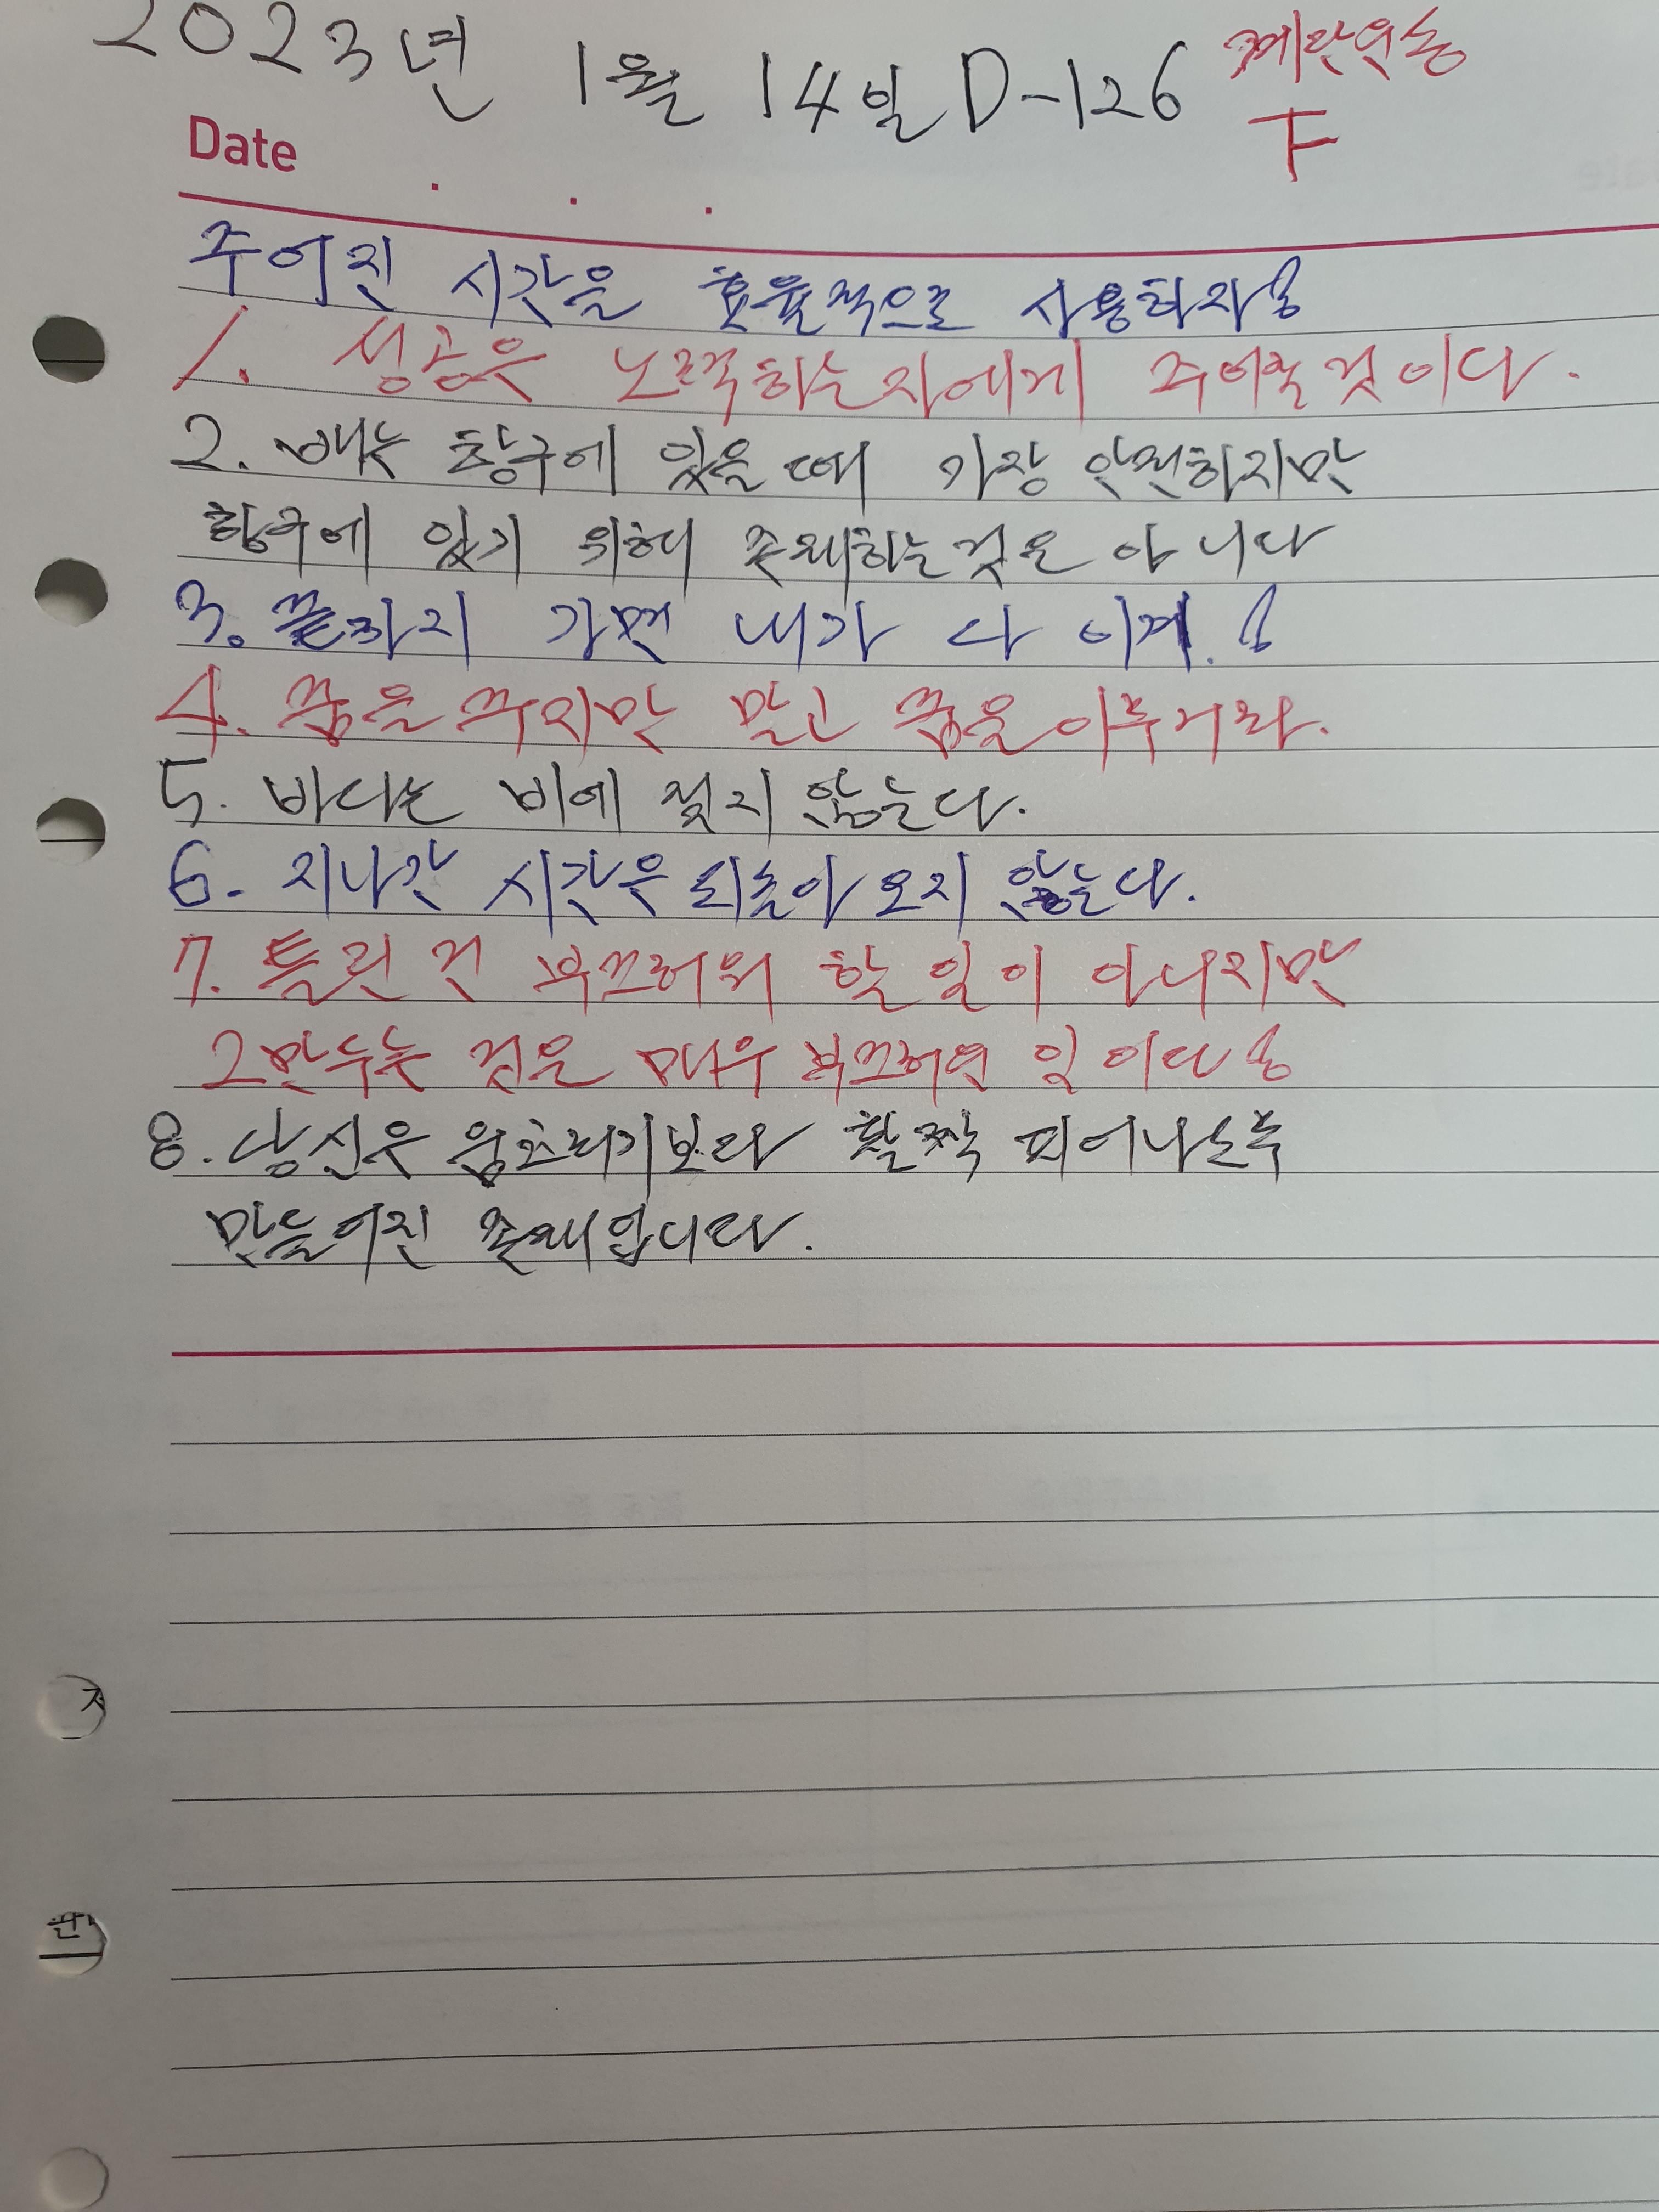 2023년 1월 14일 D-126
F
Date . . .
주어진 시간을 효율적으로 사용하자!
1. 성공은 노력하는자에게 주어질것이다.
2. 배는 항구에 있을 때 가장 안전하지만
항구에 있기 위해 존재하는것은 아니다
3. 끝까지 가면 내가 다 이겨.!
4. 꿈을 꾸지만 말고 꿈을 이루거라.
5. 바다는 비에 젖지 않는다.
6. 지나간 시간은 되돌아 오지 않는다.
7. 틀린 건 부끄러워 할 일이 아니지만
그만두는 것은 매우 부끄러운 일이다!
8. 당신은 웅크리기보다 활짝 피어나도록
만들어진 존재입니다.